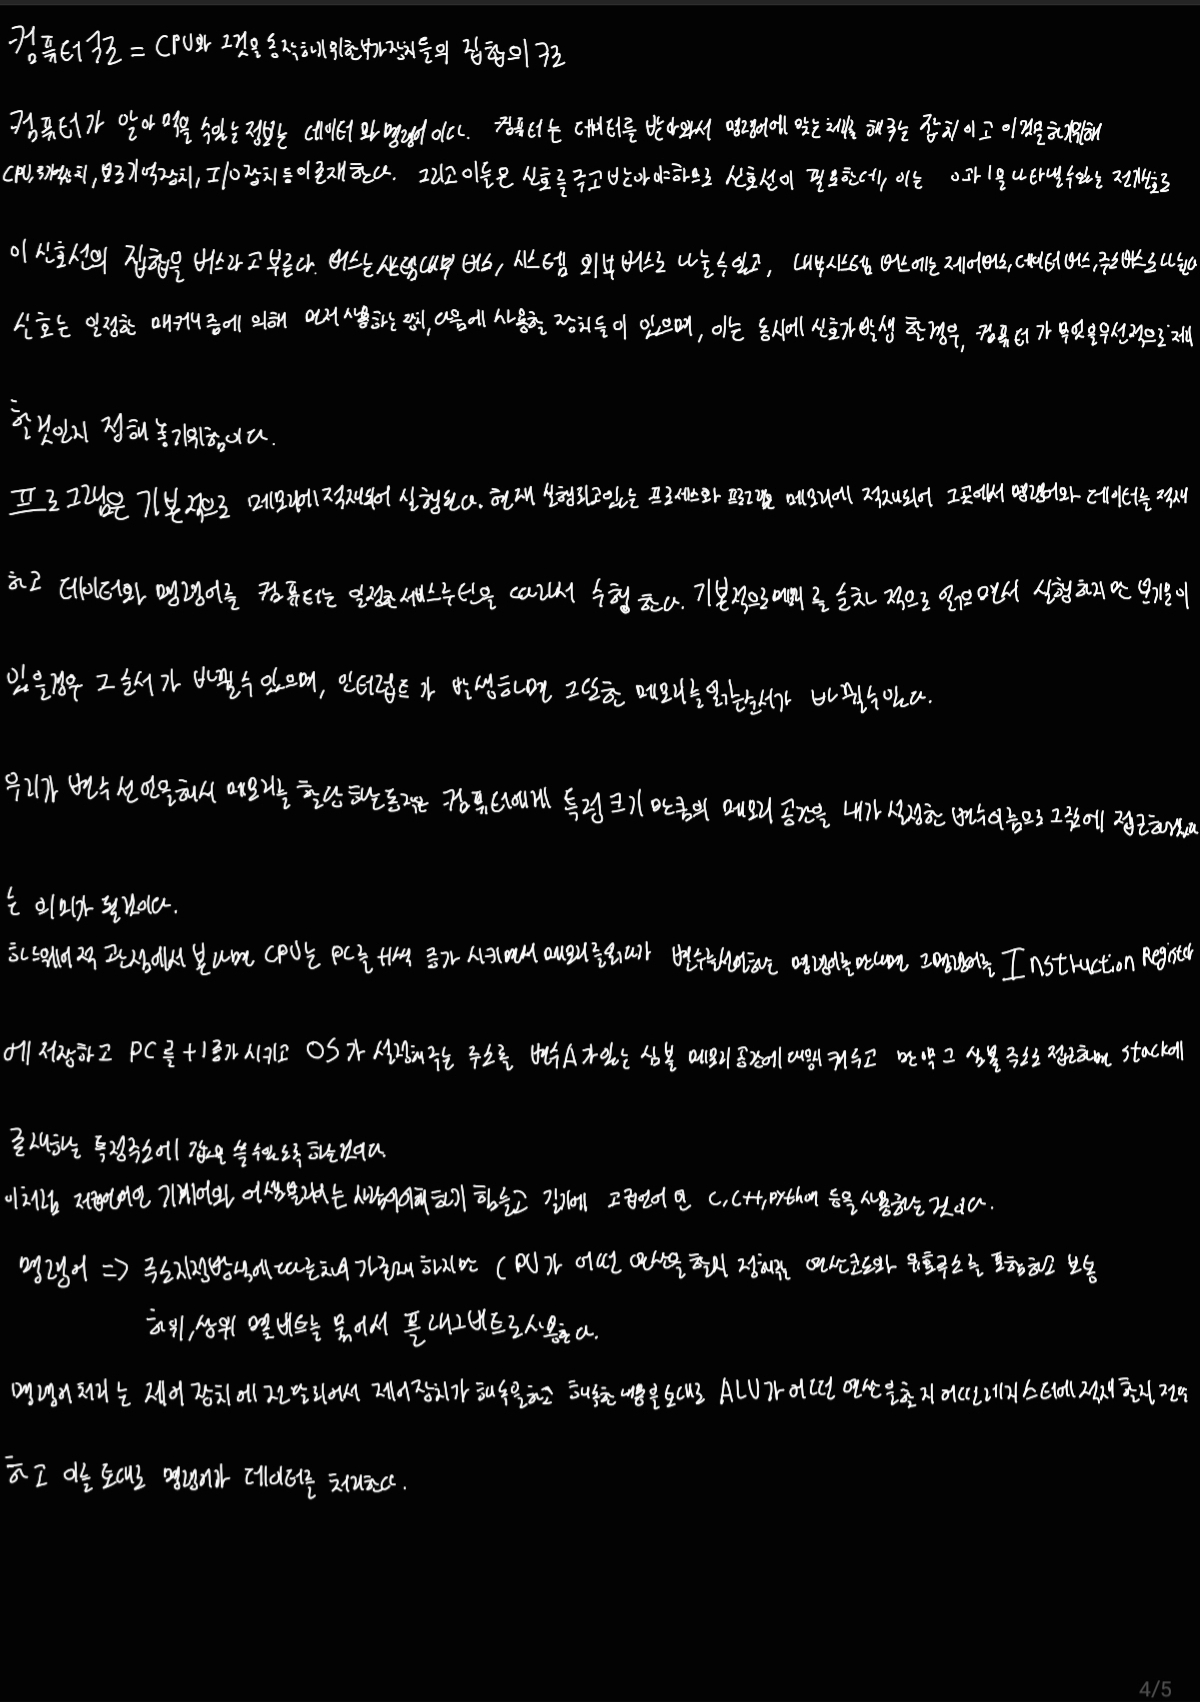 컴퓨터 구조 = CPU와 그것을 동작하기 위한 부가장치들의 집합의 구조
컴퓨터가 알아 먹을 수 있는 정보는 데이터와 명령어 이다. 컴퓨터는 데이터를 받아와서 명령어에 맞는 처리를 해주는 장치이고 이것을 하기위해
CPU, 주기억장치, 보조기억장치, I/O장치 등이 존재한다. 그리고 이들은 신호를 주고 받아야 하므로 신호선이 필요한데, 이는 0과 1을 나타낼수있는 전기신호로
이 신호선의 집합을 버스라고 부른다. 버스는 시스템 내부 버스, 시스템 외부 버스로 나눌 수 있고, 내부시스템 버스에는 제어버스, 데이터 버스, 주소버스로 나뉜다
신호는 일정한 매커니즘에 의해 먼저 사용하는 장치, 다음에 사용할 장치들이 있으며, 이는 동시에 신호가 발생 할경우, 컴퓨터가 무엇을 우선적으로 처리
할 것인지 정해 놓기 위함이다.
프로그램은 기본적으로 메모리에 적재되어 실행된다. 현재 실행되고있는 프로세스와 프로그램은 메모리에 적재되어 그곳에서 명령어와 데이터를 적재
하고 데이터와 명령어를 컴퓨터는 일정한 서비스루틴을 따라서 수행한다. 기본적으로 메모리를 순차적으로 읽으면서 실행하지만 분기문이
있을경우 그 순서가 바뀔수 있으며, 인터럽트가 발생하면 그또한 메모리를 읽는 순서가 바뀔수 있다.
우리가 변수 선언을 해서 메모리를 할당하는 동작은 컴퓨터에게 특정 크기 만큼의 메모리 공간을 내가 설정한 변수이름으로 그곳에 접근하겠다
는 의미가 될것이다.
하드웨어적 관점에서 본다면 CPU는 PC를 +1씩 증가 시키면서 메모리를 읽다가 변수를 선언하는 명령어를 만나면 그 명령어를 Instruction Register
에 저장하고 PC를 +1증가시키고 OS가 설정해주는 주소를 변수A가 있는 심볼 메모리 공간에 대입 시켜주고 만약 그 심볼 주소로 접근하면 stack에
존재하는 특정주소에 값을 쓸 수 있도록 하는것이다.
이처럼 저급언어인 기계어와 어셈블리어는 사람이 이해하기 힘들고 길기에 고급언어인 C, C++, python 등을 사용하는 것이다.
명령어 => 주소지정방식에 따른 차이가 존재하지만 CPU가 어떤 연산을 할지 정해주는 연산코드와 유효주소를 포함하고 보통
하위, 상위 몇 비트를 묶어서 플래그 비트로 사용한다.
명령어 처리는 제어 장치에 전달되어서 제어장치가 해석을 하고 해석한 내용을 토대로 ALU가 어떤 연산을 할지 어떤 레지스터에 적재할지 전달
하고 이를 토대로 명령어가 데이터를 처리한다.
4/5